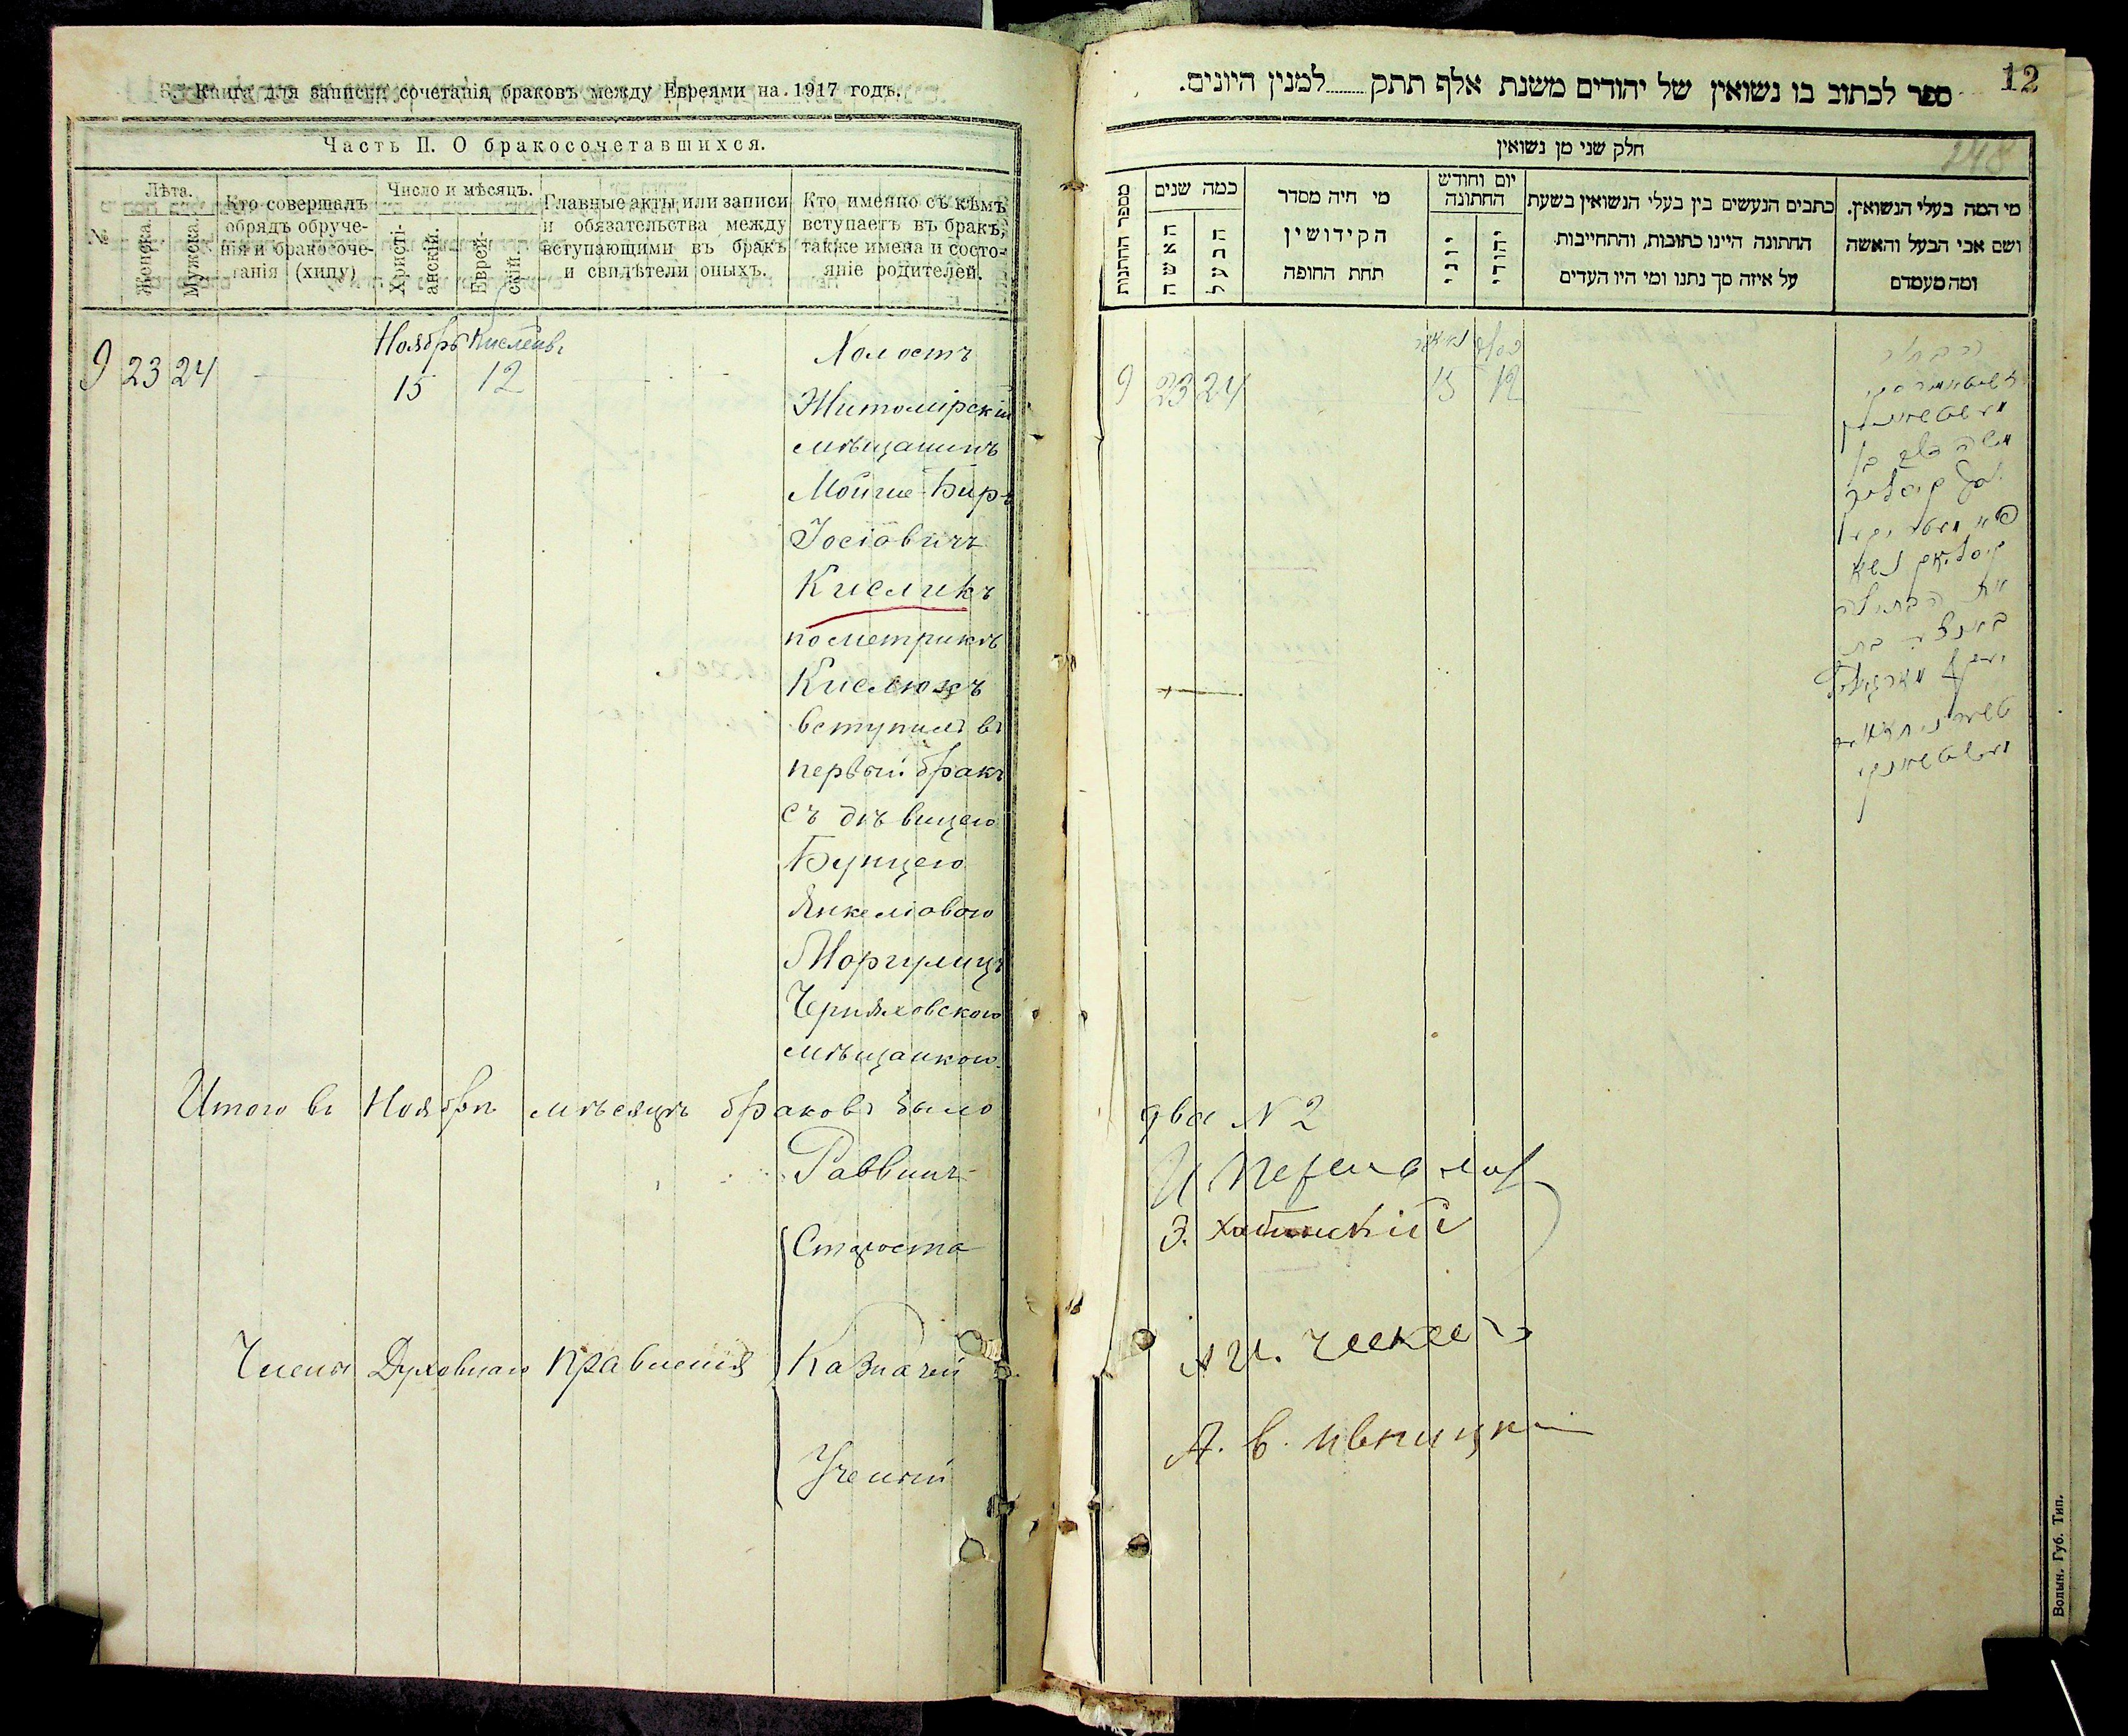 Книга для записи сочетанія браковъ между Евреями на 1917 годъ.
Часть II. О бракосочетавшихся.
№
Лѣта.
Женска.
Мужска.
Кто совершалъ
обрядъ обруче-
нія и бракосоче-
танія (хипу)
Число и мѣсяцъ.
Христі-
анскій.
Еврей-
скій.
Главные акты или записи
и обязательства между
вступающими въ бракъ
и свидѣтели оныхъ.
Кто именно съ кѣмъ
вступаетъ въ бракъ,
также имена и состо-
яніе родителей.
9 23 24
Ноябрь Кислевъ
15 12
Холостъ
Житомірскій
мѣщанинъ
Мойше-Беръ
Іосіовичъ
Кисликъ
по метрикѣ
Кислюкъ
вступилъ въ
первый бракъ
съ дѣвицею
Бунцею
Янкеліовою
Моргулицъ
Черняховскою
мѣщанкою.
Итого въ Ноябрѣ мѣсяцѣ браковъ было
Раввинъ
Староста
Члены Духовнаго Правленія
Казначей
Ученый
12
ספר לכתוב בו נשואין של יהודים משנת אלף תתק למנין היונים.
248
חלק שני מן נשואין
מספר החתונות
כמה שנים
האשה
הבעל
מי היה מסדר
הקידושין
תחת החופה
יום וחודש
החתונה
יוני
יהודי
כתבים הנעשים בין בעלי הנשואין בשעת
החתונה היינו כתובות, והתחייבות
על איזה סך נתנו ומי היו העדים
מי המה בעלי הנשואין.
ושם אבי הבעל והאשה
ומה מעמדם
9 23 24
15 12
הבחור
משה בער בן
נשא
את הבתולה
בונציא בת
два № 2
А. В. Ивницкій
Волын. Губ. Тип.